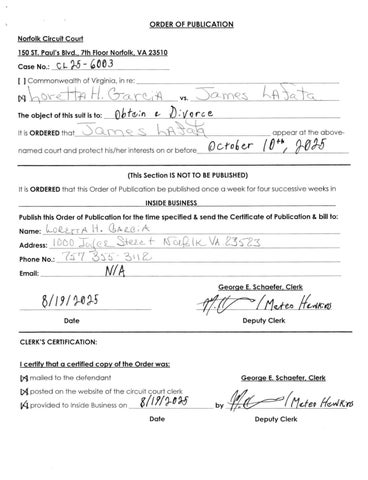 ORDER OF PUBLICATION
Norfolk Circuit Court
150 ST. Paul's Blvd., 7th Floor Norfolk, VA 23510
Case No.: CL25-6003
[ ] Commonwealth of Virginia, in re:
[x] Loretta H. Garcia vs. James LaFata
The object of this suit is to: Obtain a Divorce
It is ORDERED that James LaFata appear at the above-
named court and protect his/her interests on or before October 10th, 2025
(This Section IS NOT TO BE PUBLISHED)
It is ORDERED that this Order of Publication be published once a week for four successive weeks in
INSIDE BUSINESS
Publish this Order of Publication for the time specified & send the Certificate of Publication & bill to:
Name: Loretta H. Garcia
Address: 1000 Joyce Street Norfolk VA 23523
Phone No.: 757 355-3112
Email: N/A
George E. Schaefer, Clerk
8/19/2025 / Mateo Hawkins
Date Deputy Clerk
CLERK'S CERTIFICATION:
I certify that a certified copy of the Order was:
[x] mailed to the defendant George E. Schaefer, Clerk
[x] posted on the website of the circuit court clerk
[x] provided to Inside Business on 8/19/2025 by / Mateo Hawkins
Date Deputy Clerk